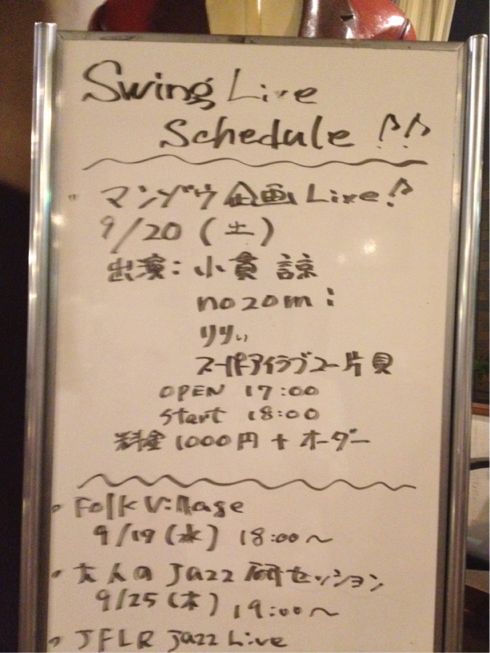 Swing Live
Schedule !!
マンゾウ企画 Live!
9/20 (土)
出演: 小貫 諒
nozomi
りりぃ
スーパーアイラブユー片貝
OPEN 17:00
Start 18:00
料金 1000円 + オーダー
• Folk Village
9/17 (水) 18:00〜
• 大人の Jazz 研セッション
9/25 (木) 19:00〜
• JFLR Jazz Live